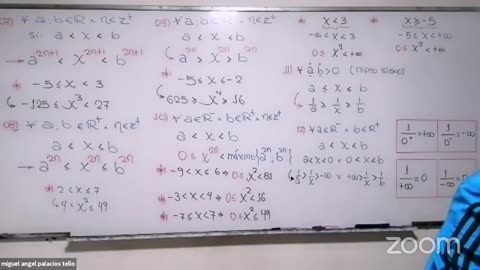 07) ∀ a; b ∈ ℝ ∧ n ∈ ℤ⁺
si: a < x < b
→ a²ⁿ⁺¹ < x²ⁿ⁺¹ < b²ⁿ⁺¹
* -5 ≤ x < 3
↳ -125 ≤ x³ < 27
08) ∀ a; b ∈ ℝ⁺ ∧ n ∈ ℤ⁺
a ≤ x < b
↳ a²ⁿ ≤ x²ⁿ ≤ b²ⁿ
* 2 < x ≤ 7
↳ 4 < x² ≤ 49
09) ∀ a; b ∈ ℝ⁻ ∧ n ∈ ℤ⁺
a < x < b
↳ a²ⁿ > x²ⁿ > b²ⁿ
* -5 ≤ x ≤ -2
↳ 625 ≥ x⁴ ≥ 16
10) ∀ a ∈ ℝ⁻ ∧ b ∈ ℝ⁺ ∧ n ∈ ℤ⁺
a < x < b
0 ≤ x²ⁿ < máximo {a²ⁿ; b²ⁿ}
* -9 < x ≤ 6 → 0 ≤ x² < 81
* -3 < x < 4 → 0 ≤ x² < 16
* -7 ≤ x < 7 → 0 ≤ x² ≤ 49
* x < 3
-∞ < x < 3
0 ≤ x² < +∞
* x ≥ -5
-5 ≤ x < +∞
0 ≤ x² < +∞
11) ∀ a.b > 0 (mismo signo)
a ≤ x ≤ b
↳ 1/a ≥ 1/x ≥ 1/b
12) ∀ a ∈ ℝ⁻ ∧ b ∈ ℝ⁺
a < x < b
a < x < 0 ∨ 0 < x < b
↳ 1/a > 1/x > -∞ ∨ +∞ > 1/x > 1/b
1/0⁺ = +∞
1/0⁻ = -∞
1/+∞ = 0
1/-∞ = 0
miguel angel palacios tello
zoom